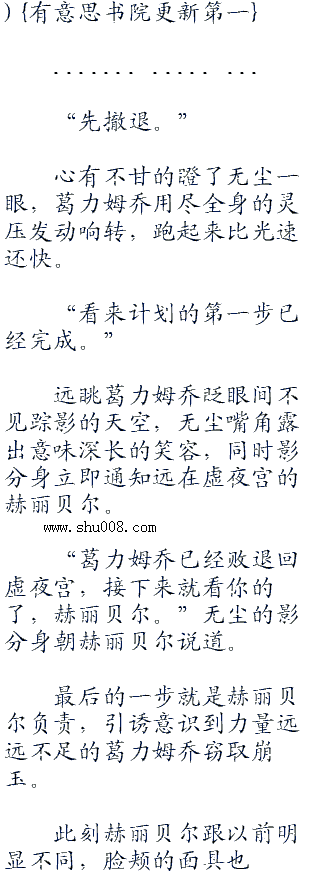 ) {有意思书院更新第一}
....... ..... ...
“先撤退。”
心有不甘的瞪了无尘一
眼，葛力姆乔用尽全身的灵
压发动响转，跑起来比光速
还快。
“看来计划的第一步已
经完成。”
远眺葛力姆乔眨眼间不
见踪影的天空，无尘嘴角露
出意味深长的笑容，同时影
分身立即通知远在虚夜宫的
赫丽贝尔。
www.shu008.com
“葛力姆乔已经败退回
虚夜宫，接下来就看你的
了，赫丽贝尔。”无尘的影
分身朝赫丽贝尔说道。
最后的一步就是赫丽贝
尔负责，引诱意识到力量远
远不足的葛力姆乔窃取崩
玉。
此刻赫丽贝尔跟以前明
显不同，脸颊的面具也